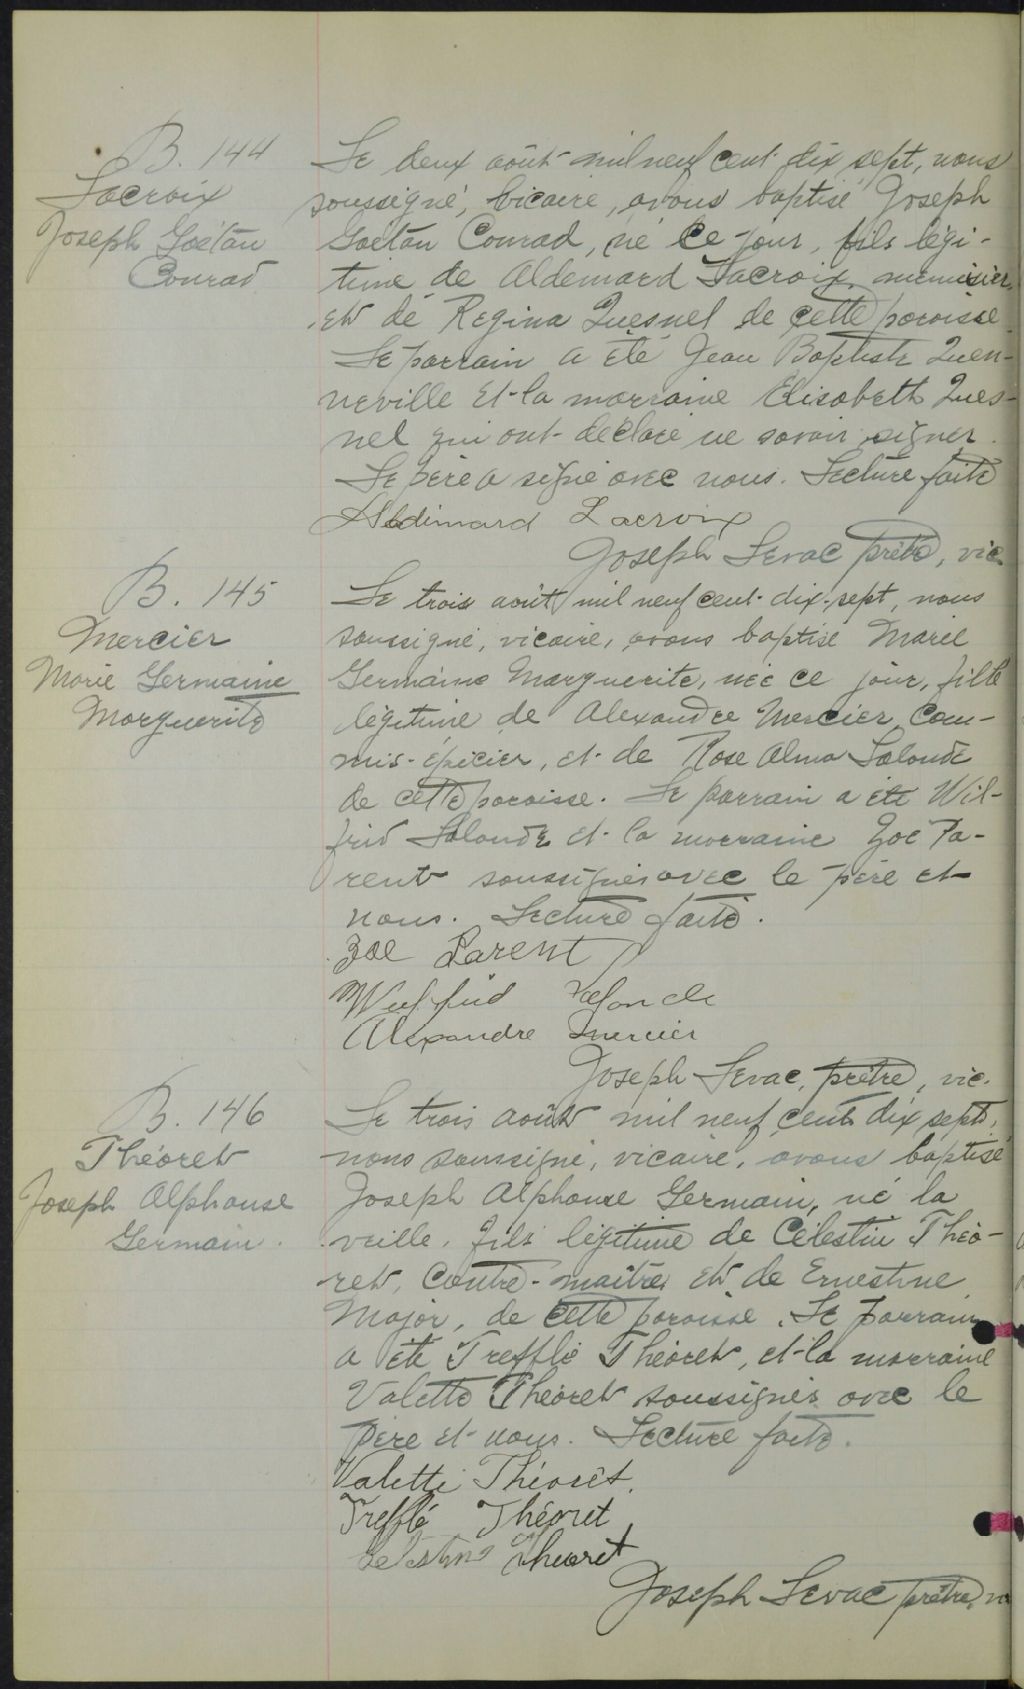 B. 144
Lacroix
Joseph Goétan
Conrad
Le deux août mil neuf cent dix sept, nous
soussigné, vicaire, avons baptisé Joseph
Gaétan Conrad, né ce jour, fils légi-
time de Aldemard Lacroix, menuisier,
et de Regina Quesnel de cette paroisse.
Le parrain a été Jean Baptiste Quen-
neville et la marraine Elisabeth Ques-
nel qui ont déclaré ne savoir signer.
Le père a signé avec nous. Lecture faite
Aldimard Lacroix
Joseph Levac prêtre, vic.
B. 145
Mercier
Marie Germaine
Marguerite
Le trois août mil neuf cent dix-sept, nous
soussigné, vicaire, avons baptisé Marie
Germaine Marguerite, née ce jour, fille
légitime de Alexandre Mercier, Com-
mis-épicier, et de Rose Alma Lalonde
de cette paroisse. Le parrain a été Wil-
frid Lalonde et la marraine Zoé Pa-
rent soussignés avec le père et
nous. Lecture faite.
Zoe Parent
Wilfrid Lalonde
Alexandre Mercier
Joseph Levac, prêtre, vic.
B. 146
Théoret
Joseph Alphonse
Germain.
Le trois août mil neuf cent dix sept,
nous soussigné, vicaire, avons baptisé
Joseph Alphonse Germain, né la
veille, fils légitime de Célestin Théo-
ret, Contre-maître, et de Ernestine
Major, de cette paroisse. Le parrain
a été Trefflé Théoret, et la marraine
Valette Théoret soussignés avec le
père et nous. Lecture faite.
Valetti Théorêt.
Trefflé Théoret
Celestin Theoret
Joseph Levac prêtre,